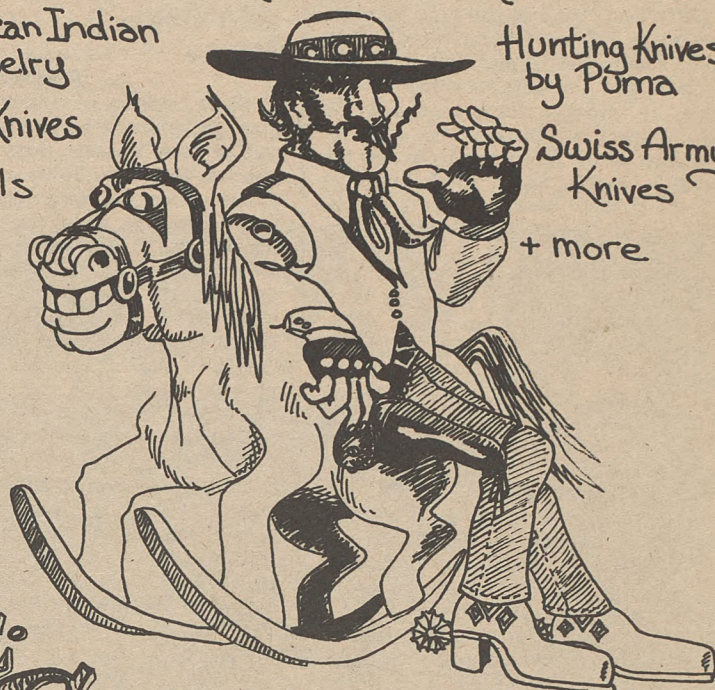 Indian
Knives
Hunting Knives
by Puma
Swiss Army
Knives
+ more